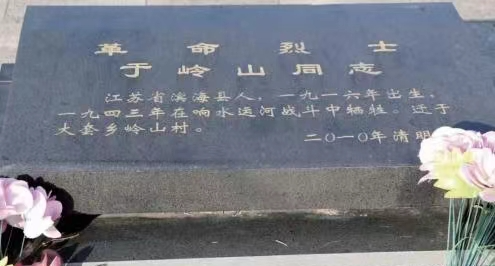 革命烈士
于岭山同志
江苏省滨海县人，一九一六年出生。
一九四三年在响水运河战斗中牺牲。迁于
大套乡岭山村。
二〇一〇年清明